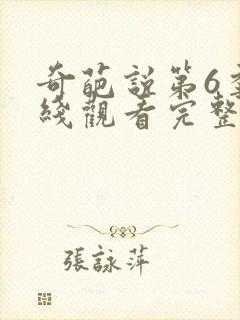 奇葩説第6季
綫觀看完整
張詠萍